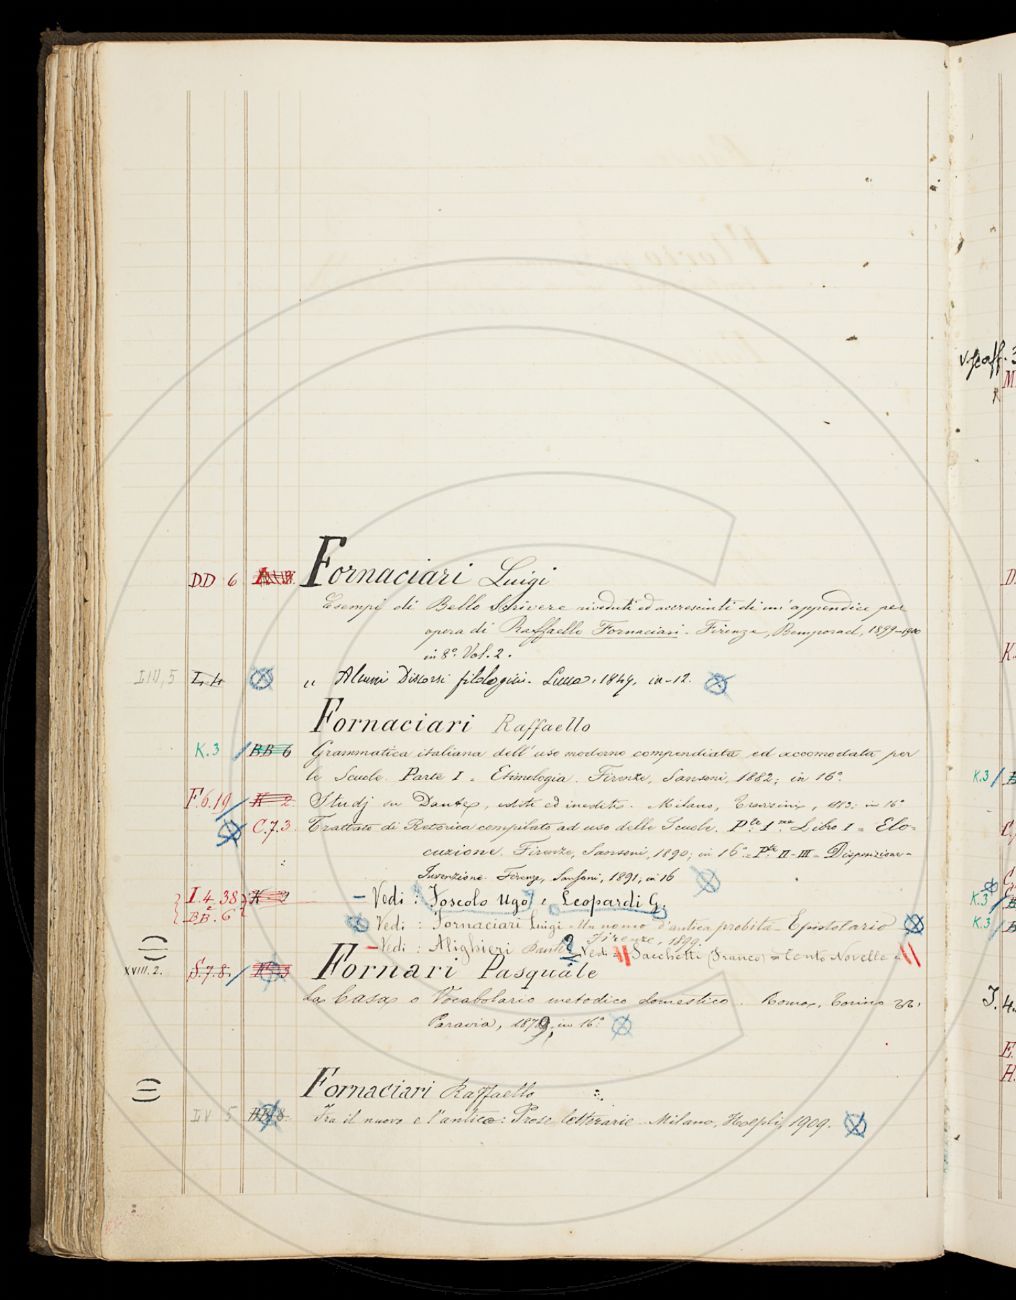 DD 6 Fornaciari Luigi
Esempi di Bello Scrivere riveduti ed accresciuti di un' appendice per
opera di Raffaello Fornaciari. Firenze, Bemporad, 1899-1900
in 8° Vol. 2.
LIV, 5 L.4 „ Alcuni Discorsi filologici. Lucca, 1847, in-12.
Fornaciari Raffaello
K.3 BB 6 Grammatica italiana dell' uso moderno compendiata ed accomodata per
le Scuole. Parte I. Etimologia. Firenze, Sansoni, 1882; in 16°
F.6.19 K 2 Studj su Dante, editi ed inediti. Milano, in 16°
C.7.3 Trattato di Retorica compilato ad uso delle Scuole. Pte Ima Libro I = Elo-
cuzione. Firenze, Sansoni, 1890; in 16° = Pte II-III = Disposizione =
Invenzione. Firenze, Sansoni, 1891, in 16
I.4.38 K 2 - Vedi: Foscolo Ugo, e Leopardi G.
BB. 6 Vedi: Fornaciari Luigi Un uomo d'antica probità - Epistolario
Firenze, 1899.
- Vedi: Alighieri Dante Vedi = Sacchetti (Franco) = Cento Novelle =
XVIII. 2. S.7.8. Fornari Pasquale
La Casa o Vocabolario metodico domestico. Roma, Torino
Paravia, 1879, in 16°
Fornaciari Raffaello
LV 5 BB 8. Fra il nuovo e l'antico: Prose letterarie. Milano, Hoepli, 1909.
K.3
K.3
K.3